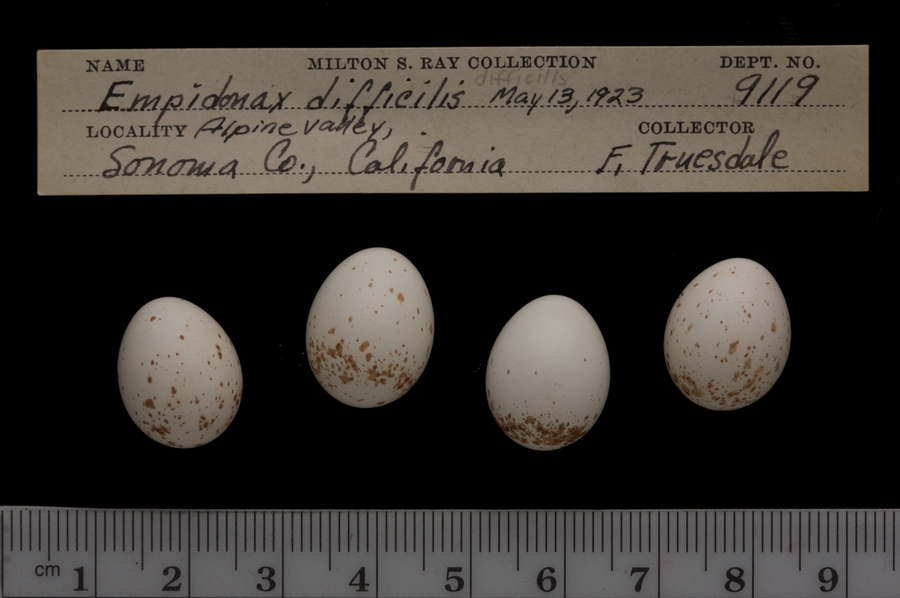 NAME MILTON S. RAY COLLECTION DEPT. NO.
difficilis
Empidonax difficilis May 13, 1923 9119
LOCALITY Alpine valley, COLLECTOR
Sonoma Co., California F. Truesdale
cm 1 2 3 4 5 6 7 8 9